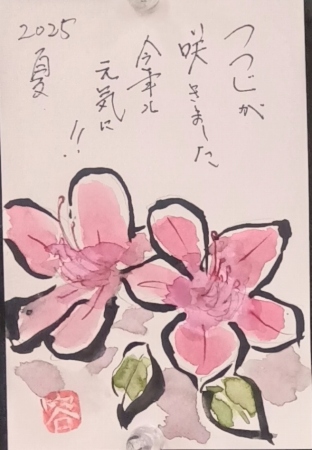 つつじが
咲きました
今年も
元気に!!
2025
夏